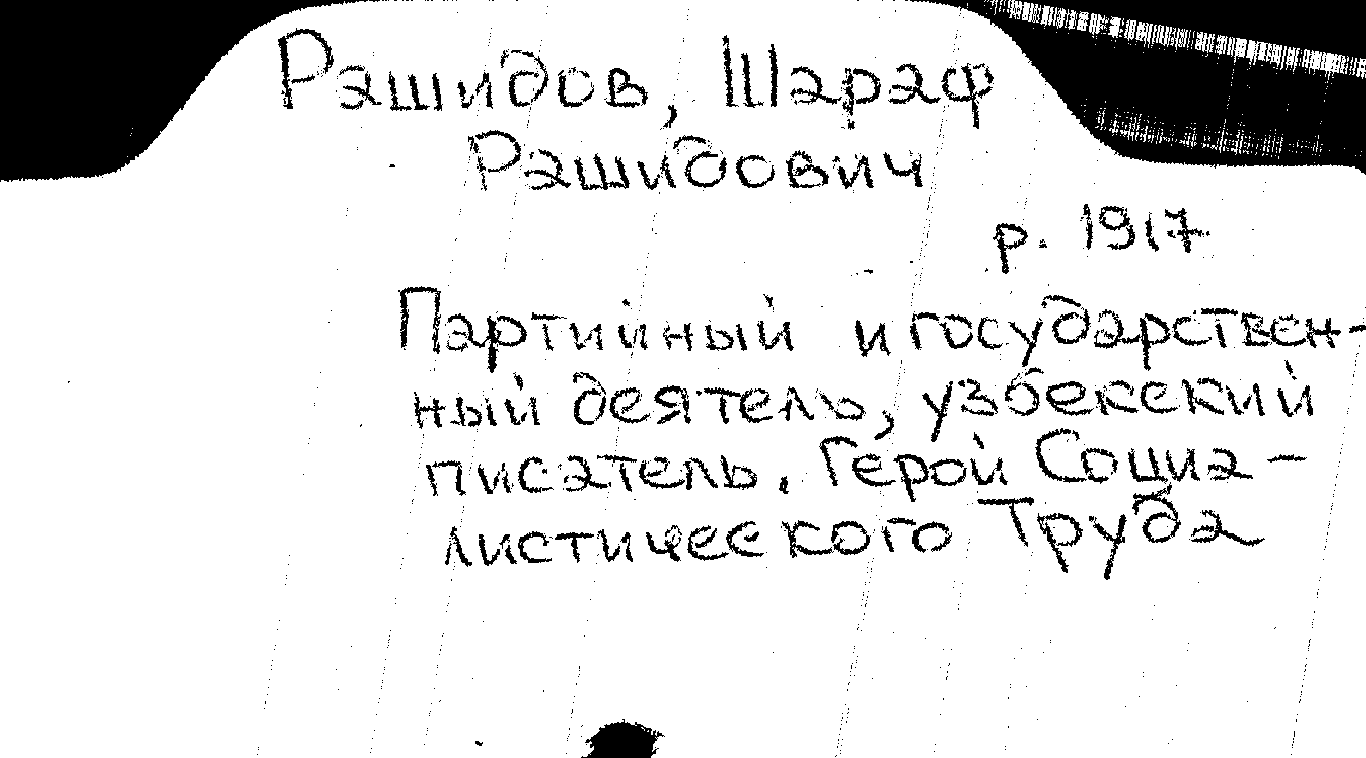 Рашидов, Шараф
Рашидович
р. 1917
Партийный и государствен-
ный деятель, узбекский
писатель, Герой Социа-
листического Труда